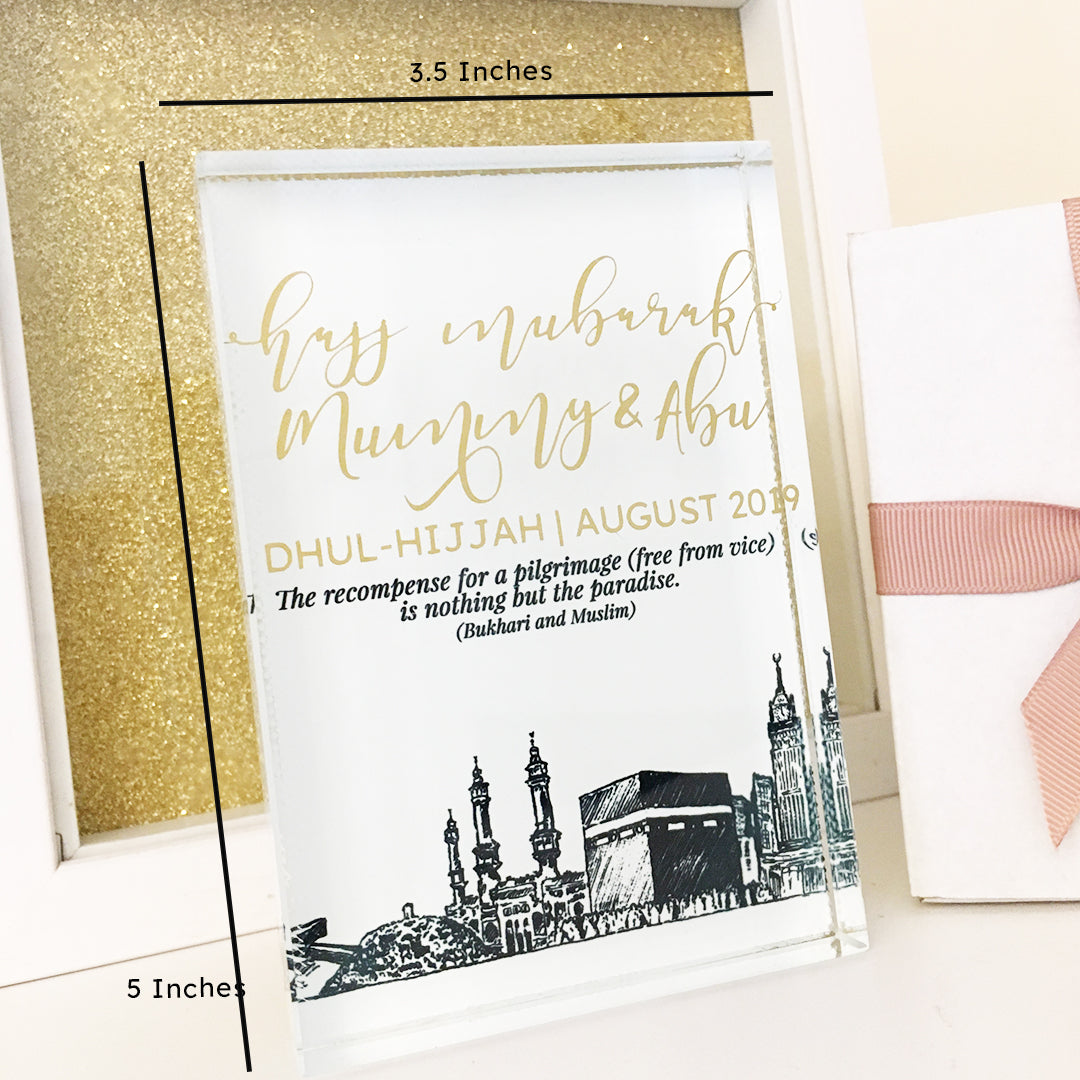 3.5 Inches
hajj mubarak
Mummy & Abu
DHUL-HIJJAH | AUGUST 2019
The recompense for a pilgrimage (free from vice)
is nothing but the paradise.
(Bukhari and Muslim)
5 Inches